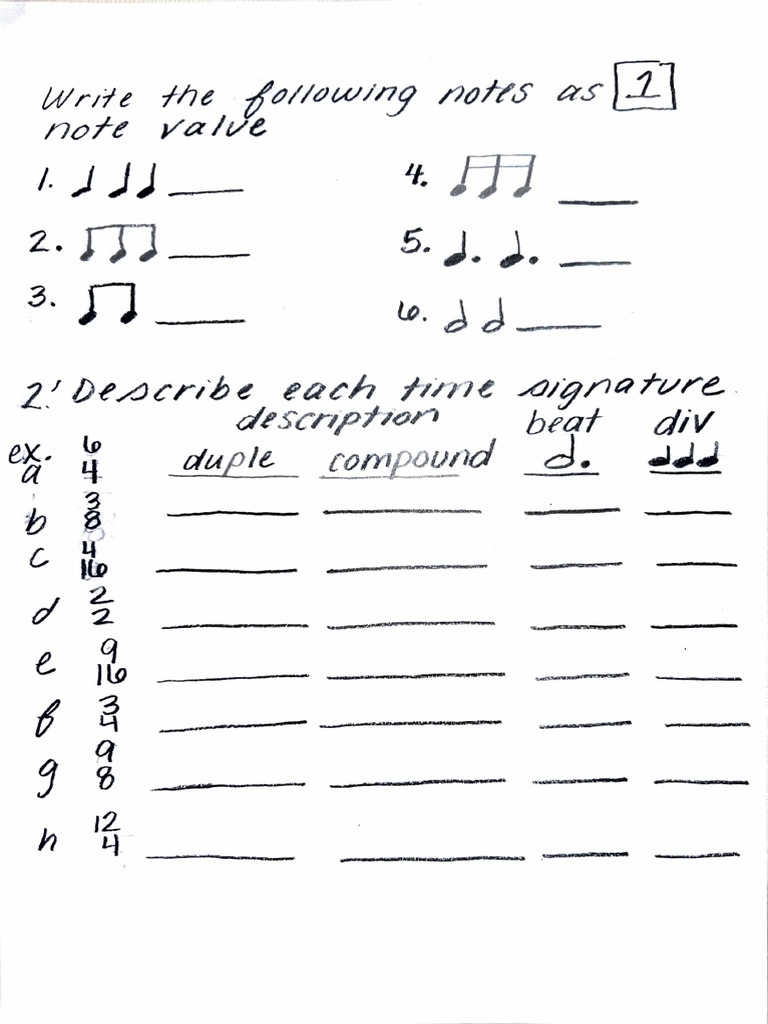 Write the following notes as 1
note value
1. ♩ ♩ ♩ ____ 4. ♬ ____
2. ♫ ____ 5. ♩. ♩. ____
3. ♫ ____ 6. 𝅗𝅥 𝅗𝅥 ____
2. Describe each time signature
description beat div
ex. a 6/4 duple compound 𝅗𝅥. ♩♩♩
b 3/8
c 4/16
d 2/2
e 9/16
f 3/4
g 9/8
h 12/4